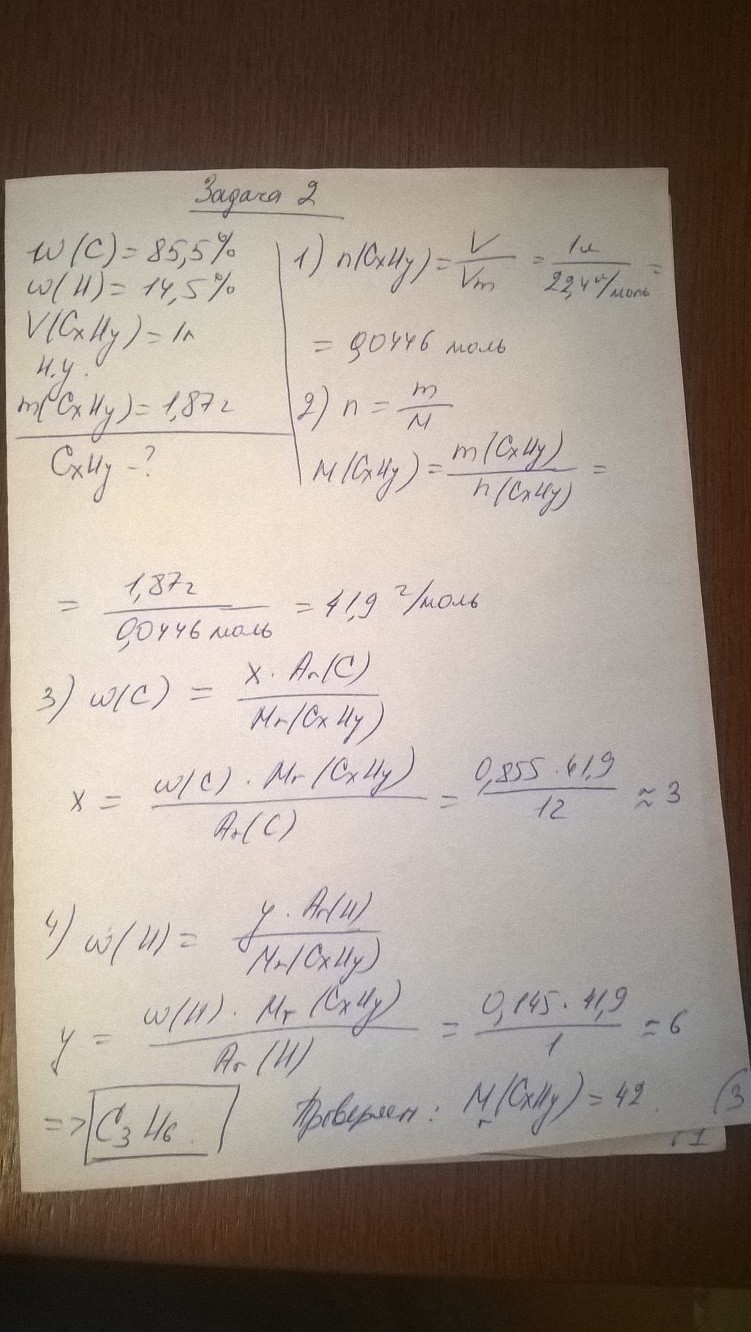 Задача 2
w(C) = 85,5%
w(H) = 14,5%
V(CxHy) = 1л
н.у.
m(CxHy) = 1,87г
CxHy - ?
1) n(CxHy) = V/Vm = 1л/22,4 л/моль =
= 0,0446 моль
2) n = m/M
M(CxHy) = m(CxHy)/n(CxHy) =
= 1,87г/0,0446 моль = 41,9 г/моль
3) w(C) = x · Ar(C)/Mr(CxHy)
x = w(C) · Mr(CxHy)/Ar(C) = 0,855 · 41,9/12 ≈ 3
4) w(H) = y · Ar(H)/Mr(CxHy)
y = w(H) · Mr(CxHy)/Ar(H) = 0,145 · 41,9/1 = 6
=> C3H6. Проверяем: Mr(CxHy) = 42. (3